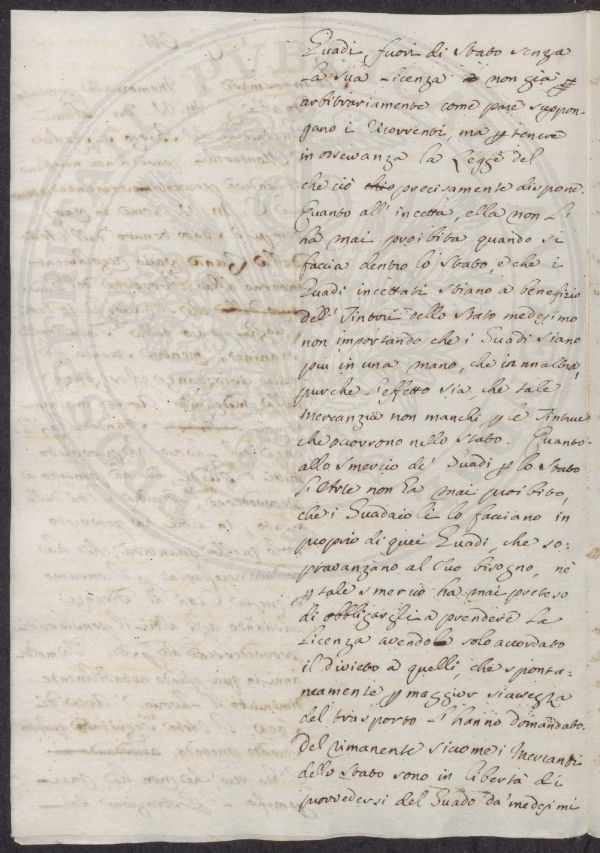 Guadi, fuori di Stato senza
la sua Licenza non già ꝑ
arbitrariamente come pare suppon-
gano i Ricorrenti, ma ꝑ tenere
in osservanza la Legge del
che ciò precisamente dispone.
Quanto all' incetta, ella non l'
ha mai proibita quando si
faccia dentro lo Stato, e che i
Guadi incettati stiano à benefizio
dell' Tintori dello Stato medesimo
non importando che i Guadi siano
più in una mano, che in un altra,
purche l'effetto sia, che tale
Mercanzia non manchi, ꝑ le Tinture
che occorrono nello Stato. Quanto
allo smercio de' Guadi ꝑ lo Stato
l'Arte non ha mai proibito,
che i Guadaioli lo facciano in
proprio di quei Guadi, che so-
pravanzano al suo bisogno, nè
ꝑ tale smercio ha mai preteso
di obbligargli a prendere la
Licenza avendola solo accordato
il divieto à quelli, che sponta-
neamente ꝑ maggior sicurezza
del trasporto l' hanno domandato.
Del rimanente siccome i Mercanti
dello Stato sono in libertà di
provvedersi del Guado da' medesimi